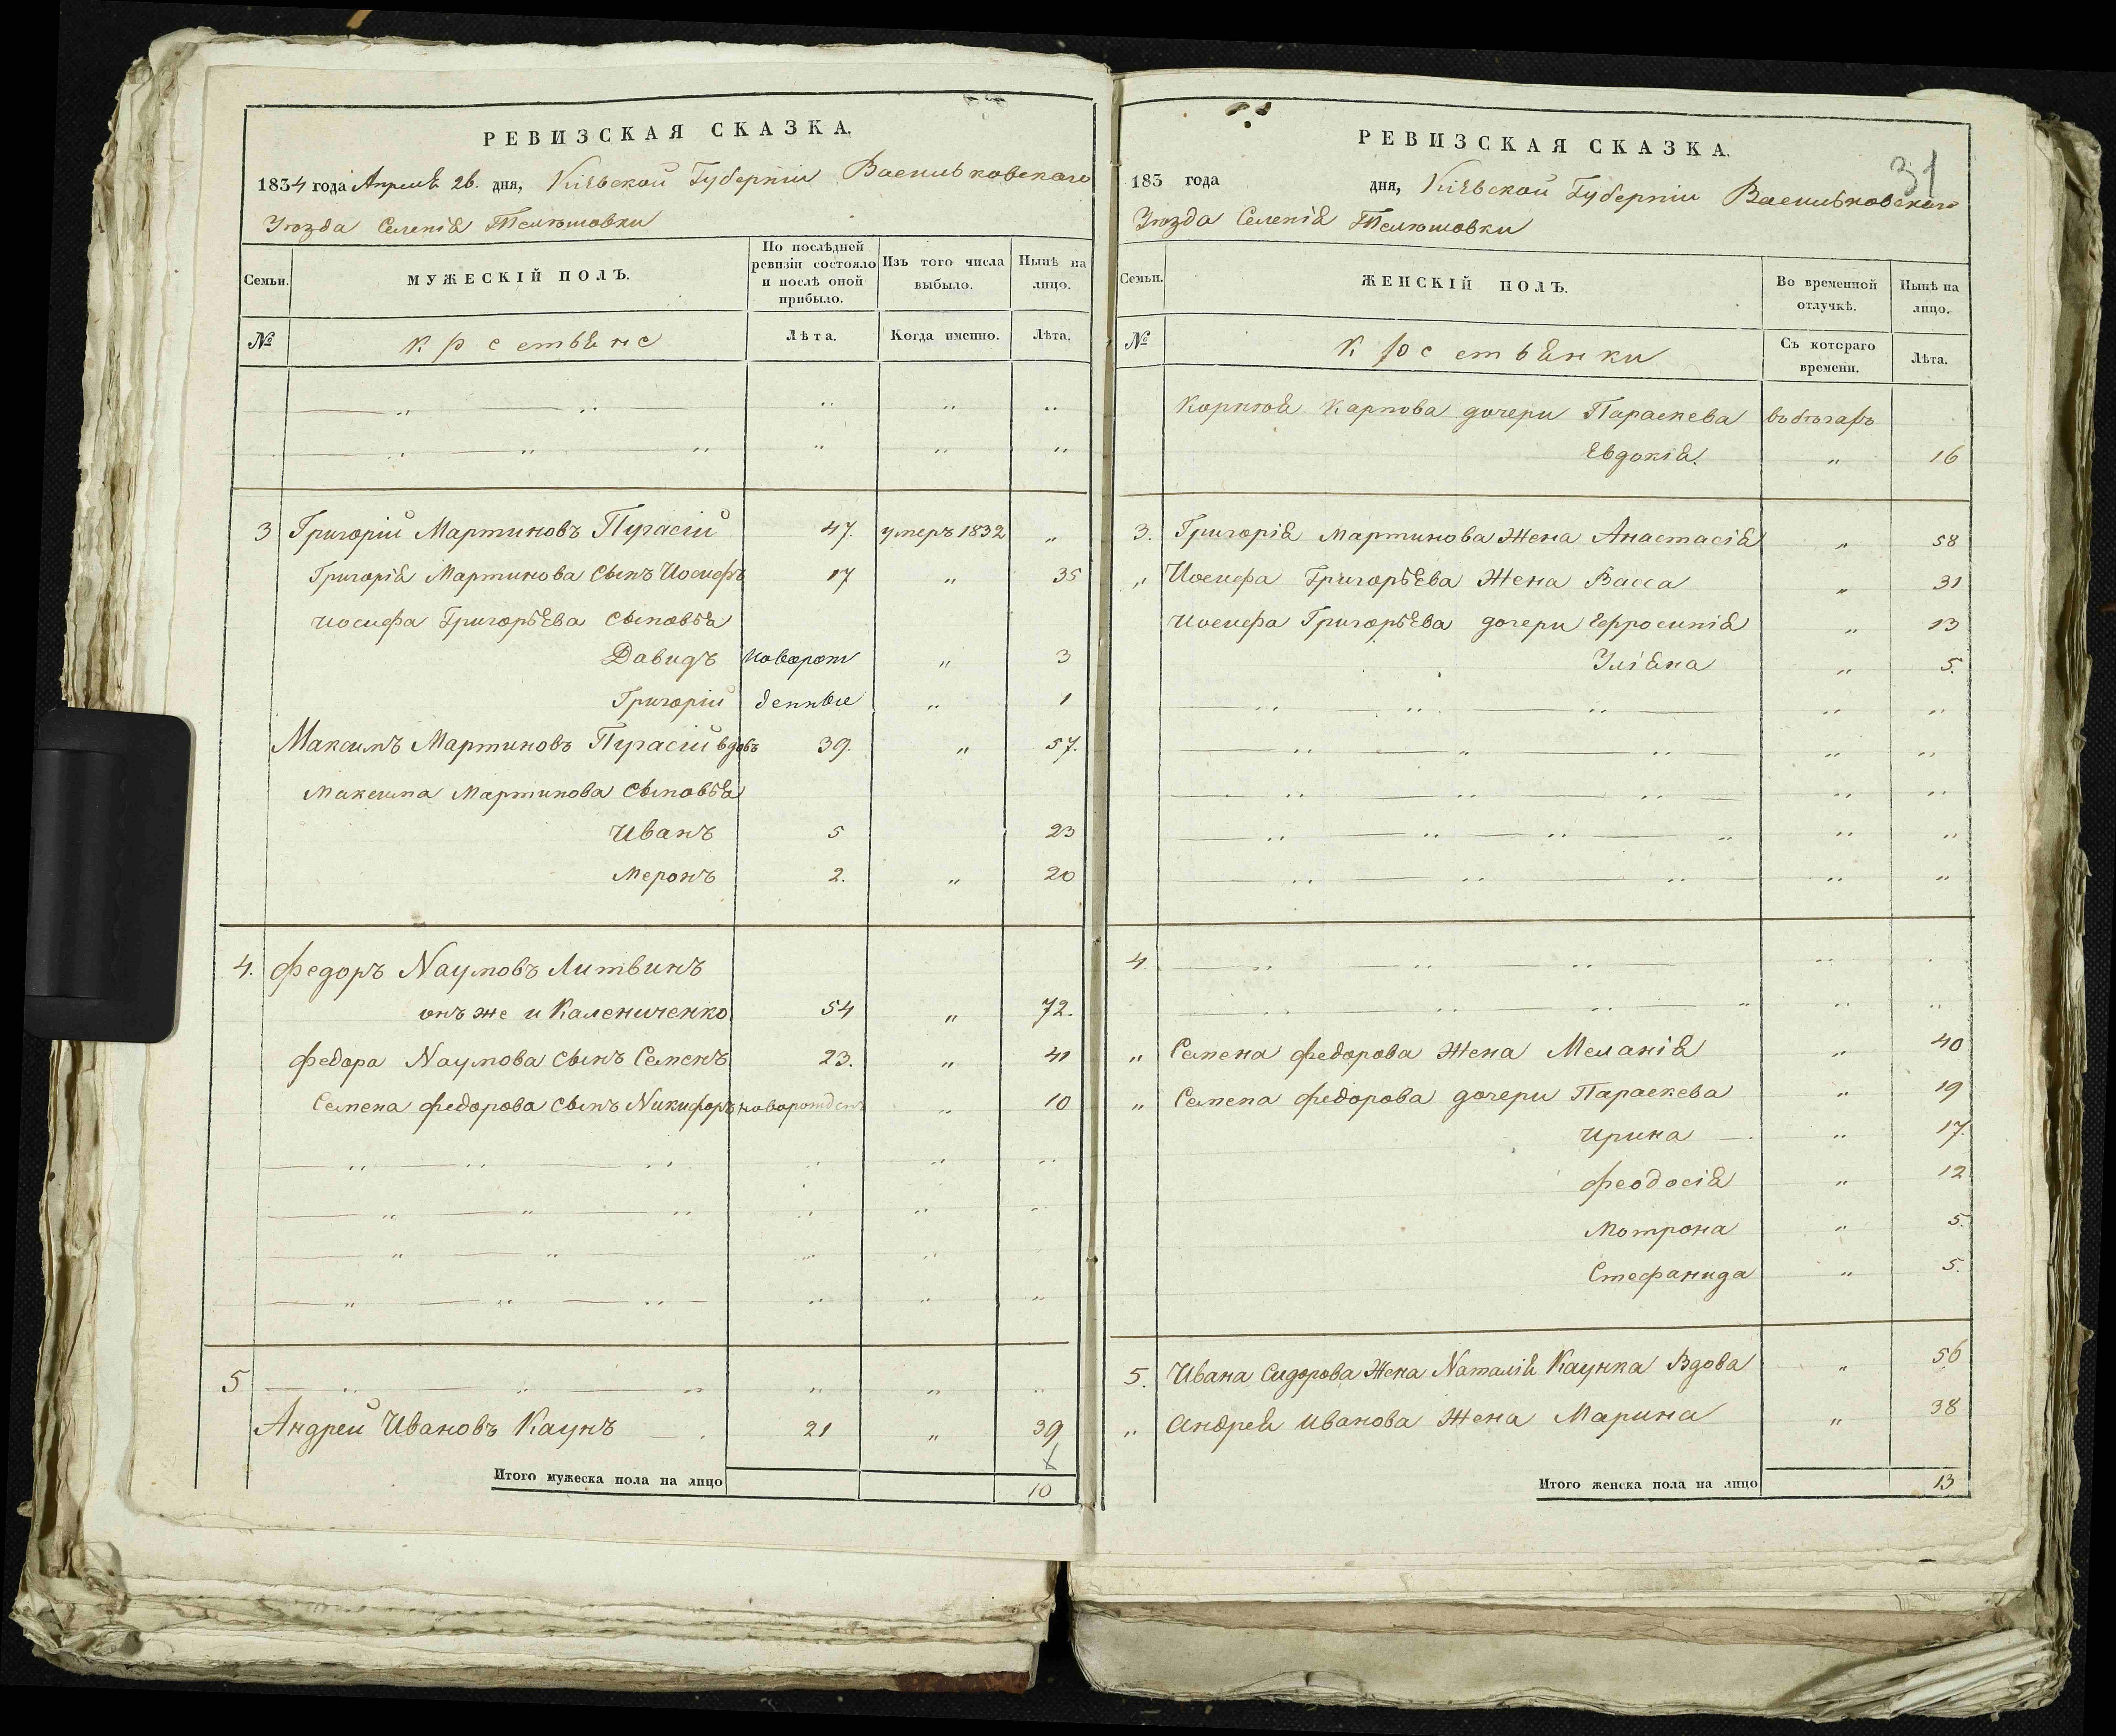 РЕВИЗСКАЯ СКАЗКА.
1834 года Апреля 26. дня, Кіевской Губерніи Васильковскаго
Уѣзда Селенія Телюшовки
Семьи.
МУЖЕСКІЙ ПОЛЪ.
По послѣдней ревизіи состояло и послѣ оной прибыло.
Изъ того числа выбыло.
Нынѣ на лицо.
№
Крестьяне
Лѣта.
Когда именно.
Лѣта.
3 Григорій Мартиновъ Пугасій 47. умеръ 1832 „
Григорія Мартинова сынъ Иосифъ 17 „ 35
Иосифа Григорьева сыновья
Давидъ новорож „ 3
Григорій денные „ 1
Максимъ Мартиновъ Пугасій вдовъ 39. „ 57.
Максима Мартинова сыновья
Иванъ 5 23
Меронъ 2. „ 20
4. Федоръ Наумовъ Литвинъ
онъ же и Калениченко 54 „ 72.
Федора Наумова сынъ Семенъ 23. „ 41
Семена Федорова сынъ Никифоръ новорожден „ 10
5
Андрей Ивановъ Каунъ 21 „ 39
Итого мужеска пола на лицо 10
РЕВИЗСКАЯ СКАЗКА.
31
183 года дня, Кіевской Губерніи Васильковскаго
Уѣзда Селенія Телюшовки
Семьи.
ЖЕНСКІЙ ПОЛЪ.
Во временной отлучкѣ.
Нынѣ на лицо.
№
Крестьянки
Съ котораго времени.
Лѣта.
Корнія Карпова дочери Параскева въ бѣгахъ
Евдокія. „ 16
3. Григорія Мартинова Жена Анастасія „ 58
„ Иосифа Григорьева Жена Васса „ 31
Иосифа Григорьева дочери Ефросинія „ 13
Уліяна „ 5.
4
„ Семена Федорова Жена Меланія „ 40
„ Семена Федорова дочери Параскева „ 19
Ирина „ 17.
Феодосія „ 12
Мотрона „ 5.
Стефанида „ 5.
5. Ивана Сидорова Жена Наталія Каунка Вдова „ 56
„ Андрея Иванова Жена Марина „ 38
Итого женска пола на лицо 13